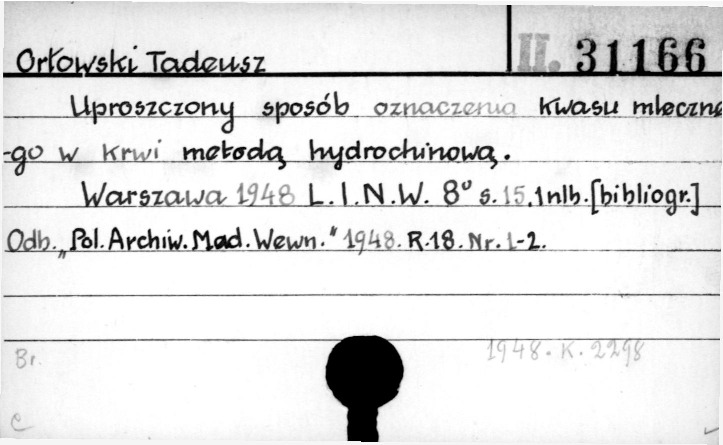 Orłowski Tadeusz
II. 31166
Uproszczony sposób oznaczenia kwasu mleczne
-go w krwi metodą hydrochinową.
Warszawa 1948 L.I.N.W. 8° s. 15, 1 nlb. [bibliogr.]
Odb. „Pol. Archiw. Med. Wewn." 1948. R.18. Nr. 1-2.
Br.
1948. K. 2298
c